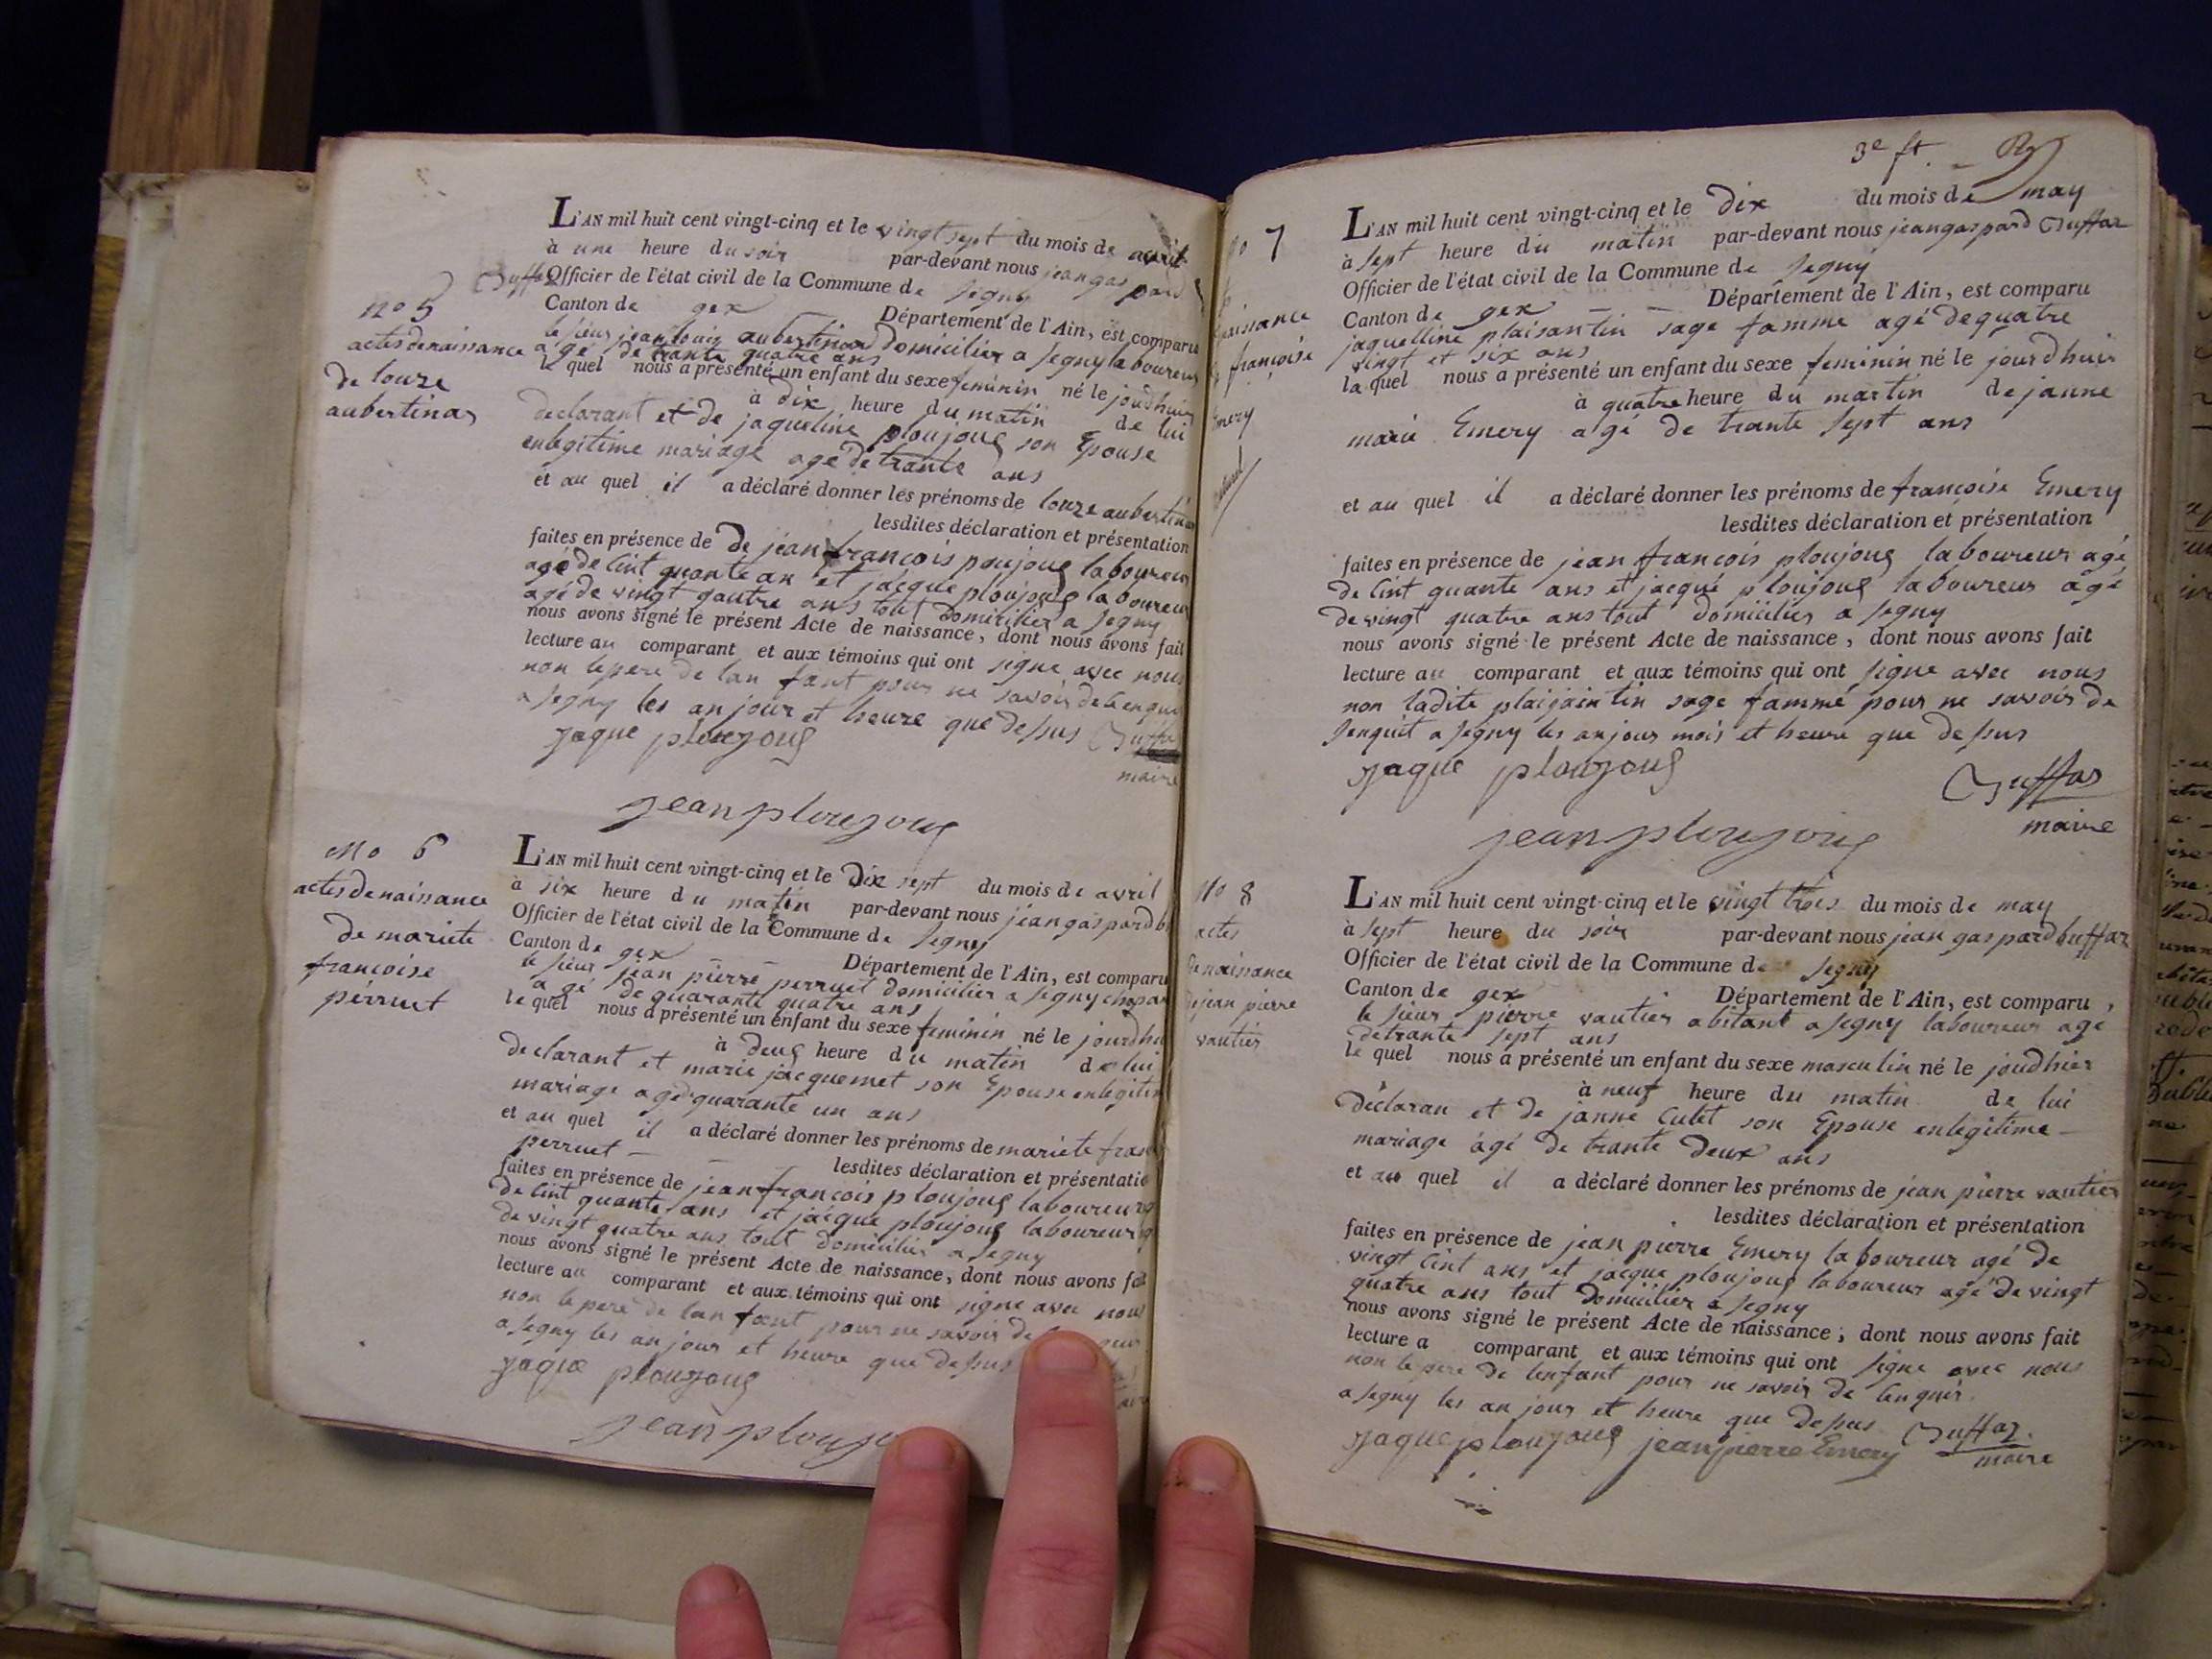 L'AN mil huit cent vingt-cinq et le vingt sept du mois de avril
à une heure du soir par-devant nous jean gaspard
Buffaz Officier de l'état civil de la Commune de segny
Canton de gex Département de l'Ain, est comparu
le sieur jean louis aubertinas domicilier a segny laboureur
agé de trante quatre ans
le quel nous a présenté un enfant du sexe feminin né le joudhuis
à dix heure du matin de lui
declarant et de jaqueline ploujoug son Epouse
enlegitime mariage agé de trante ans
et au quel il a déclaré donner les prénoms de louze aubertinas
lesdites déclaration et présentation
faites en présence de De jean francois poujoug laboureur
agé de cint quante an et jacque ploujoug laboureur
agé de vingt qautre ans tout domicilier a segny
nous avons signé le présent Acte de naissance, dont nous avons fait
lecture au comparant et aux témoins qui ont signe avec nous
non le pere de lan fant pour ne savoir de lenquis
a segny les an jour et heure que desus
jaque ploujoug Buffaz
maire
jean ploujoug
no 5
actes de naissance
de louze
aubertinas
L'AN mil huit cent vingt-cinq et le Dix sept du mois de avril
à six heure du matin par-devant nous jean gaspard b
Officier de l'état civil de la Commune de segny
Canton de gex Département de l'Ain, est comparu
le sieur jean pierre perruet domicilier a segny
agé de quarante quatre ans
le quel nous a présenté un enfant du sexe feminin né le jourdhu
à deug heure du matin de lui
declarant et marie jacquemet son Epouse enlegitim
mariage agé quarante un ans
et au quel il a déclaré donner les prénoms de mariete fran
perruet lesdites déclaration et présentatio
faites en présence de jean francois ploujoug laboureur
de cint quante ans et jacque ploujoug laboureur
de vingt quatre ans tout domicilier a segny
nous avons signé le présent Acte de naissance, dont nous avons fait
lecture au comparant et aux témoins qui ont signe avec nous
non le pere de lan fant pour ne savoir de
a segny les an jour et heure que desus
jaque ploujoug
jean ploujo
No 6
actes de naissance
de mariete
francoise
perruet
3e ft.
L'AN mil huit cent vingt-cinq et le Dix du mois de may
à sept heure du matin par-devant nous jean gaspard Buffaz
Officier de l'état civil de la Commune de segny
Canton de gex Département de l'Ain, est comparu
jaquelline plaisantin sage famme agé de quatre
vingt et six ans
la quel nous a présenté un enfant du sexe feminin né le jourdhuis
à quatre heure du martin de janne
marie Emery agé de trante sept ans
et au quel il a déclaré donner les prénoms de francoise Emery
lesdites déclaration et présentation
faites en présence de jean francois ploujoug laboureur agé
de cint quante ans et jacque ploujoug laboureur agé
de vingt quatre ans tout domicilier a segny
nous avons signé le présent Acte de naissance, dont nous avons fait
lecture au comparant et aux témoins qui ont signe avec nous
non ladite plaisaintin sage famme pour ne savoir de
lenquit a segny les an jour mois et heure que desus
jaque ploujoug Buffaz
maire
jean ploujoug
no 7
naissance
françoise
Emery
L'AN mil huit cent vingt-cinq et le vingt trois du mois de may
à sept heure du soir par-devant nous jean gaspard buffaz
Officier de l'état civil de la Commune de segny
Canton de gex Département de l'Ain, est comparu
le sieur pierre vautier abitant a segny laboureur agé
de trante sept ans
le quel nous a présenté un enfant du sexe masculin né le joudhier
à neuf heure du matin de lui
declaran et de janne Culet son Epouse enlegitime
mariage agé de trante deux ans
et au quel il a déclaré donner les prénoms de jean pierre vautier
lesdites déclaration et présentation
faites en présence de jean pierre Emery laboureur agé de
vingt cint ans et jacque ploujoug laboureur agé de vingt
quatre ans tout domicilier a segny
nous avons signé le présent Acte de naissance, dont nous avons fait
lecture a comparant et aux témoins qui ont signe avec nous
non le pere de lenfant pour ne savoir de lenquis
a segny les an jour et heure que desus
jaque ploujoug jean pierre Emery Buffaz
maire
No 8
actes
de naissance
de jean pierre
vautier